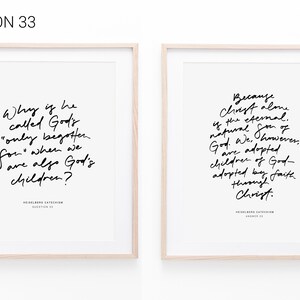 ON 33
Why is he
called God's
"only begotten
Son" when we
are also God's
children?
HEIDELBERG CATECHISM
QUESTION 33
Because
Christ alone
is the eternal,
natural Son of
God. We, however,
are adopted
children of God—
adopted by faith
through
Christ.
HEIDELBERG CATECHISM
ANSWER 33